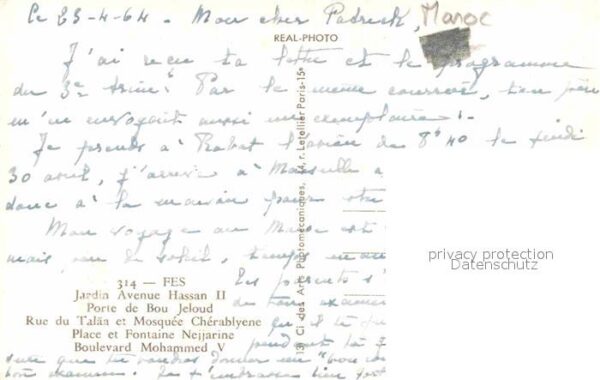 Le 23-4-64. - Mon cher Patrick, Maroc
REAL-PHOTO
J'ai reçu ta lettre et le programme
du 3e trim. Par le même courrier, ton père
m'en envoyait aussi un exemplaire.
Je prends à Rabat l'avion de 8h40 le jeudi
30 avril, j'arrive à Marseille
donc à la maison pour
Mon voyage au Maroc est
mais du soleil, temps
Tes parents
de ton examen
pendant la
sure que tu voudras donner un "bon
bon examen. Je t'embrasse bien fort
Cie des Arts Photomécaniques, 44, r. Letellier Paris-15e
privacy protection
Datenschutz
314 — FES
Jardin Avenue Hassan II
Porte de Bou Jeloud
Rue du Talâa et Mosquée Chérablyene
Place et Fontaine Nejjarine
Boulevard Mohammed V